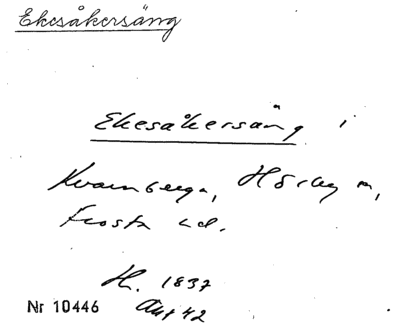 Ekesåkersäng
Ekesåkersäng i
Kvarnberga, Hörby sn,
Frosta hd.
H. 1837
Nr 10446 Akt 42